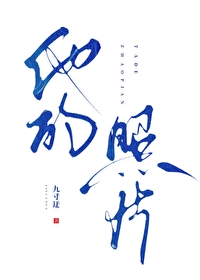 她的
照片
TADE
ZHAOPIAN
九寸